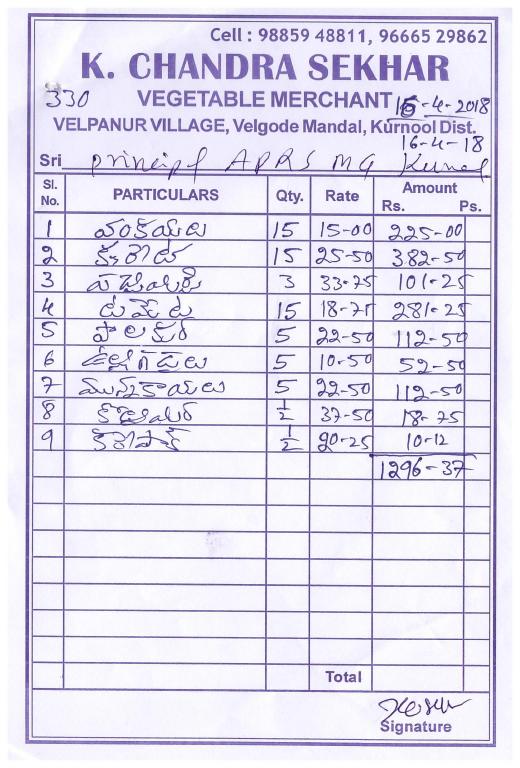 Cell : 98859 48811, 96665 29862
K. CHANDRA SEKHAR
330 VEGETABLE MERCHANT 16-4-2018
VELPANUR VILLAGE, Velgode Mandal, Kurnool Dist.
16-4-18
Sri principl APRS MG
Sl. No. PARTICULARS Qty. Rate Amount Rs. Ps.
1 వంకాయలు 15 15-00 225-00
2 క్యారెట్ 15 25-50 382-50
3 పచ్చిమిర్చి 3 33-75 101-25
4 టమోటా 15 18-75 281-25
5 పాలకూర 5 22-50 112-50
6 ఉల్లిగడ్డలు 5 10-50 52-50
7 మునక్కాయలు 5 22-50 112-50
8 కొత్తిమీర 1/2 37-50 18-75
9 కరేపాక్ 1/2 20-25 10-12
1296-37
Total
Signature